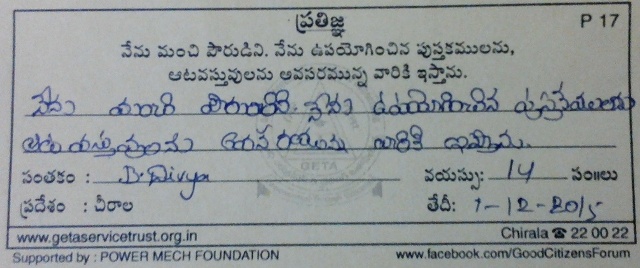 ప్రతిజ్ఞ
P 17
నేను మంచి పౌరుడిని. నేను ఉపయోగించిన పుస్తకములను,
ఆటవస్తువులను అవసరమున్న వారికి ఇస్తాను.
నేను మంచి పౌరుడిని నేను ఉపయోగించిన పుస్తకములను
ఆట వస్తువులను అవసరమున్న వారికి ఇస్తాను.
GETA
సంతకం : D. Divya వయస్సు: 14 సం॥లు
ప్రదేశం : చీరాల తేదీ: 1-12-2015
www.getaservicetrust.org.in Chirala ☎ 22 00 22
Supported by : POWER MECH FOUNDATION www.facebook.com/GoodCitizensForum